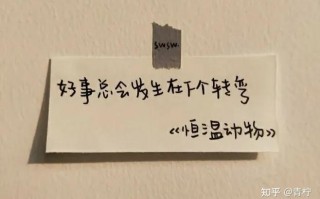 swsw.
好事总会发生在下个转弯
《恒温动物》
知乎 @青柠